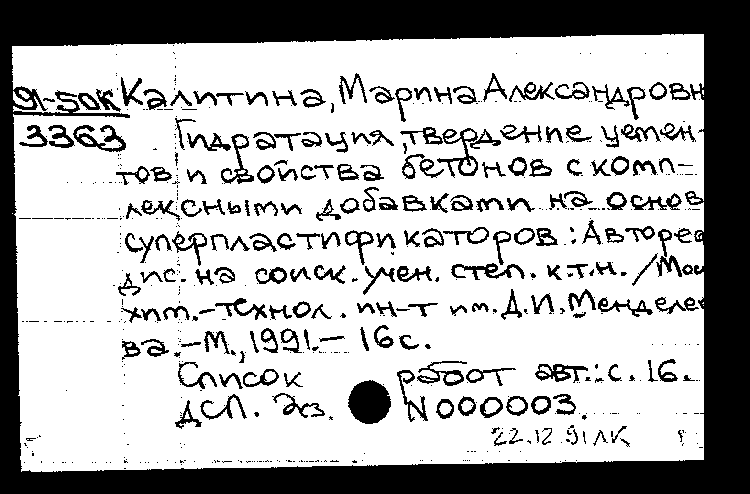 91-50К Калитина, Марина Александровн
3363 Гидратация, твердение цемен-
тов и свойства бетонов с комп-
лексными добавками на основ
суперпластификаторов : Автореф
дис. на соиск. учен. степ. к.т.н. / Мос
хим.-технол. ин-т им. Д.И. Менделее
ва. - М., 1991. - 16 с.
Список работ авт.: с. 16.
ДСП. Экз. N 000003.
22.12.91 ЛК